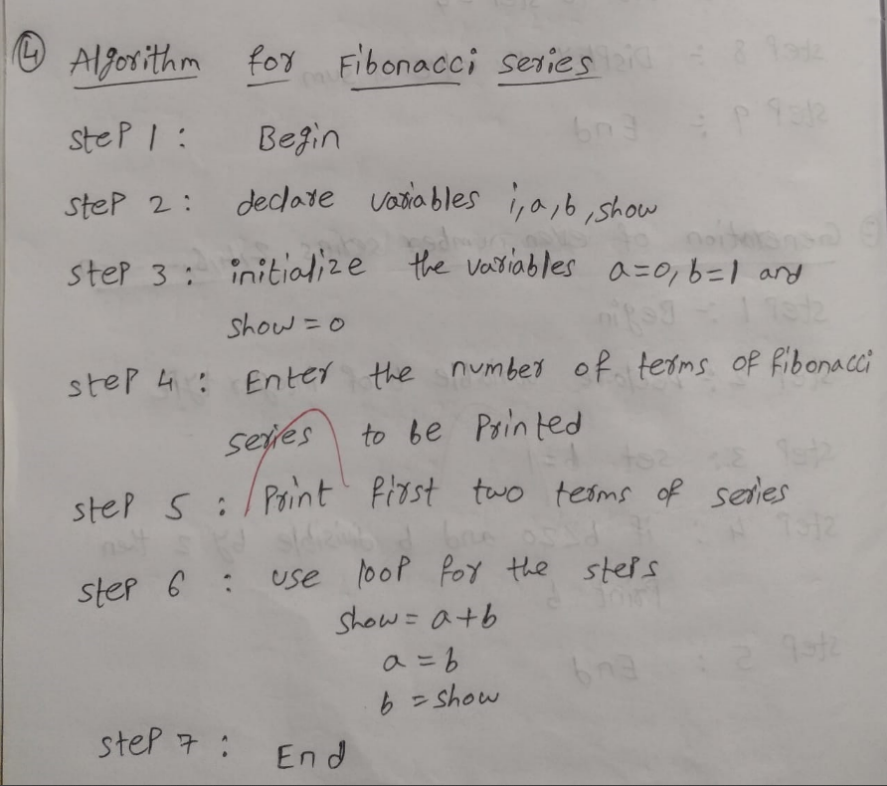 ④ Algorithm for Fibonacci series
step 1 : Begin
step 2 : declare variables i, a, b, show
step 3 : initialize the variables a=0, b=1 and
show = 0
step 4 : Enter the number of terms of fibonacci
series to be Printed
step 5 : Print first two terms of series
step 6 : use loop for the steps
show = a+b
a = b
b = show
step 7 : End